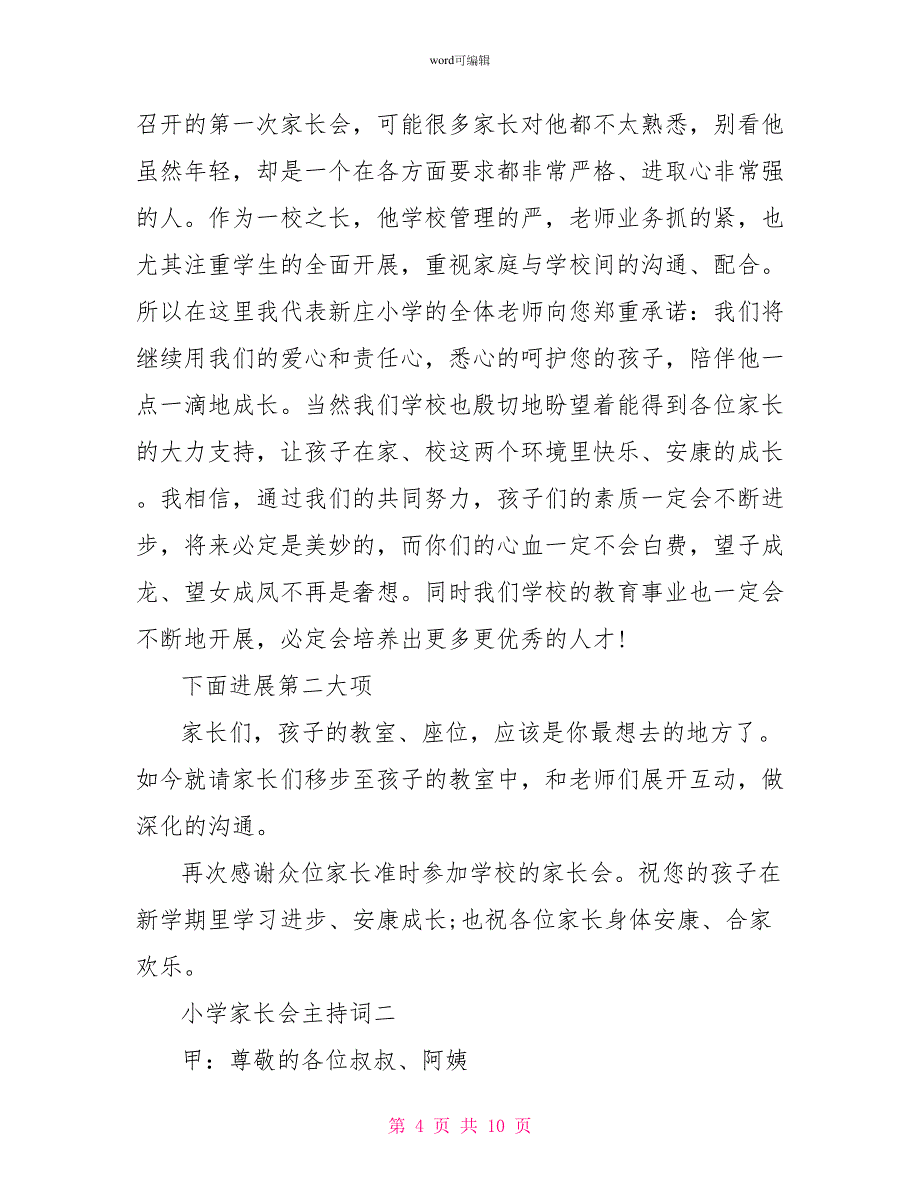 word可编辑
召开的第一次家长会，可能很多家长对他都不太熟悉，别看他
虽然年轻，却是一个在各方面要求都非常严格、进取心非常强
的人。作为一校之长，他学校管理的严，老师业务抓的紧，也
尤其注重学生的全面开展，重视家庭与学校间的沟通、配合。
所以在这里我代表新庄小学的全体老师向您郑重承诺：我们将
继续用我们的爱心和责任心，悉心的呵护您的孩子，陪伴他一
点一滴地成长。当然我们学校也殷切地盼望着能得到各位家长
的大力支持，让孩子在家、校这两个环境里快乐、安康的成长
。我相信，通过我们的共同努力，孩子们的素质一定会不断进
步，将来必定是美妙的，而你们的心血一定不会白费，望子成
龙、望女成凤不再是奢想。同时我们学校的教育事业也一定会
不断地开展，必定会培养出更多更优秀的人才!
下面进展第二大项
家长们，孩子的教室、座位，应该是你最想去的地方了。
如今就请家长们移步至孩子的教室中，和老师们展开互动，做
深化的沟通。
再次感谢众位家长准时参加学校的家长会。祝您的孩子在
新学期里学习进步、安康成长;也祝各位家长身体安康、合家
欢乐。
小学家长会主持词二
甲：尊敬的各位叔叔、阿姨
第 4 页 共 10 页